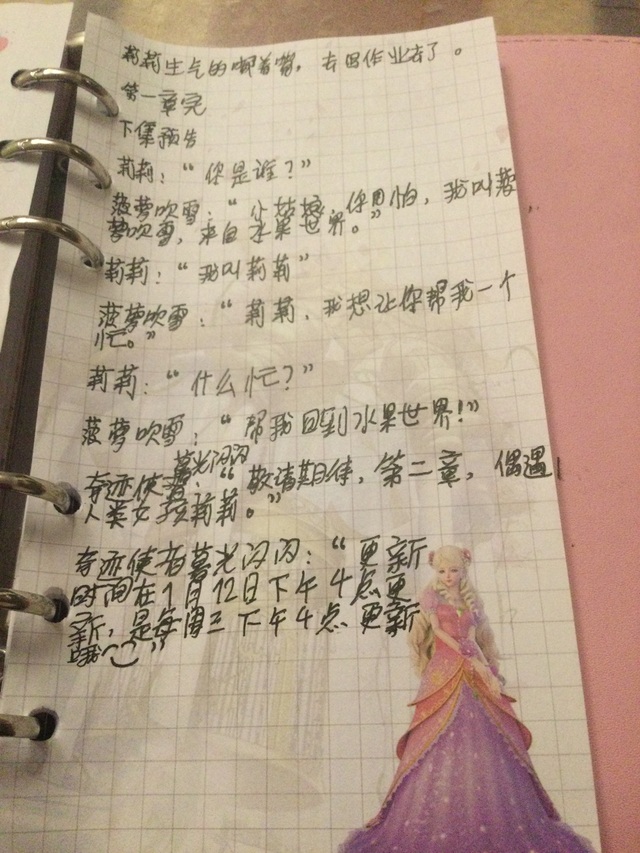 莉莉生气的嘟着嘴，去写作业去了。
第一章完
下集预告
莉莉：“你是谁？”
菠萝吹雪：“小姑娘，你甭怕，我叫菠
萝吹雪，来自水果世界。”
莉莉：“我叫莉莉”
菠萝吹雪：“莉莉，我想让你帮我一个
忙。”
莉莉：“什么忙？”
菠萝吹雪：“帮我回到水果世界！”
暮光闪闪
奇迹使者：“敬请期待，第二章，偶遇
人类女孩莉莉。”
奇迹使者暮光闪闪：“更新
时间在1月12日下午4点更
新，是每周三下午4点更新
哦”